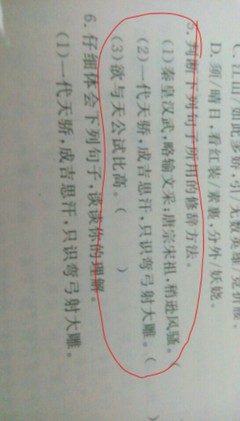 C.江山/如此多娇,引/无数英雄/竞折腰。
D.须/晴日,看红装/素裹,分外/妖娆。
5.判断下列句子所用的修辞方法。
(1)秦皇汉武,略输文采;唐宗宋祖,稍逊风骚。(
(2)一代天骄,成吉思汗,只识弯弓射大雕。( )
(3)欲与天公试比高。( )
6.仔细体会下列句子,谈谈你的理解。
(1)一代天骄,成吉思汗,只识弯弓射大雕。